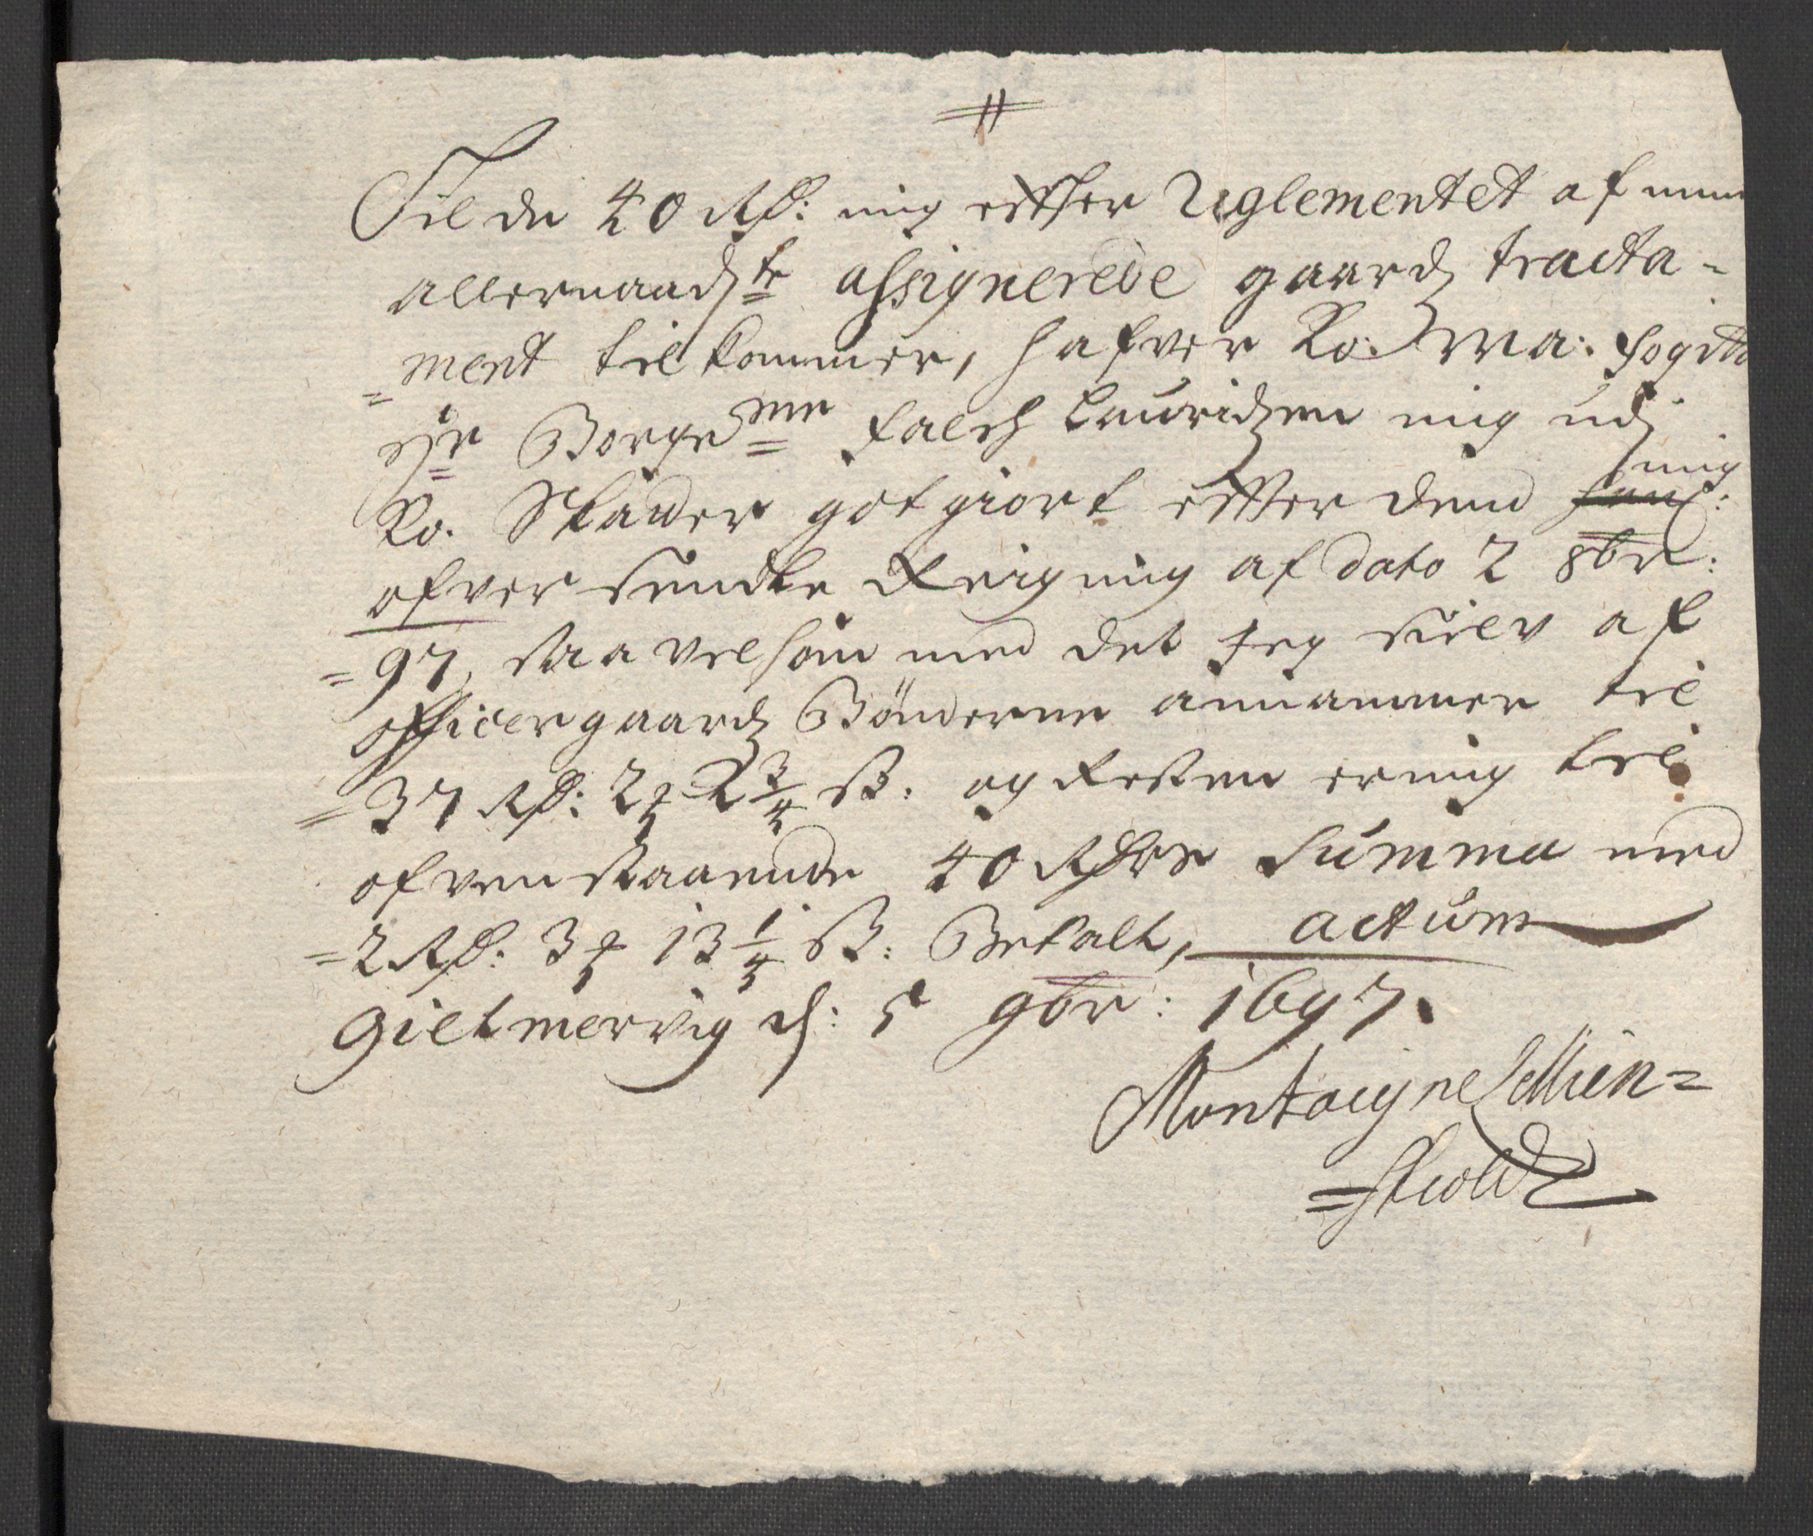 Til de 40 Rd: mig effter Reglementet af min
allernaadste assignerede gaards tracta-
=ment tilkommer, hafver Ko: Ma: fogitt
Sr Borge... Falch Lauridzen mig udj
Ko. Skatter got giort effter dend mig
ofversendte Reigning af dato 2 8br:
=97, saa velsom med det Jeg sielv af
officergaardz Bønderne annammer til
=37 Rd: 2 # 2 3/4 ß: og Resten er mig til
ofvenstaaende 40 Rdrs Summa med
=2 Rd: 3 # 13 1/4 ß: Betalt, actum
Gielmervig d: 5 9br: 1697.
Montaigne Lillien=
=skiold